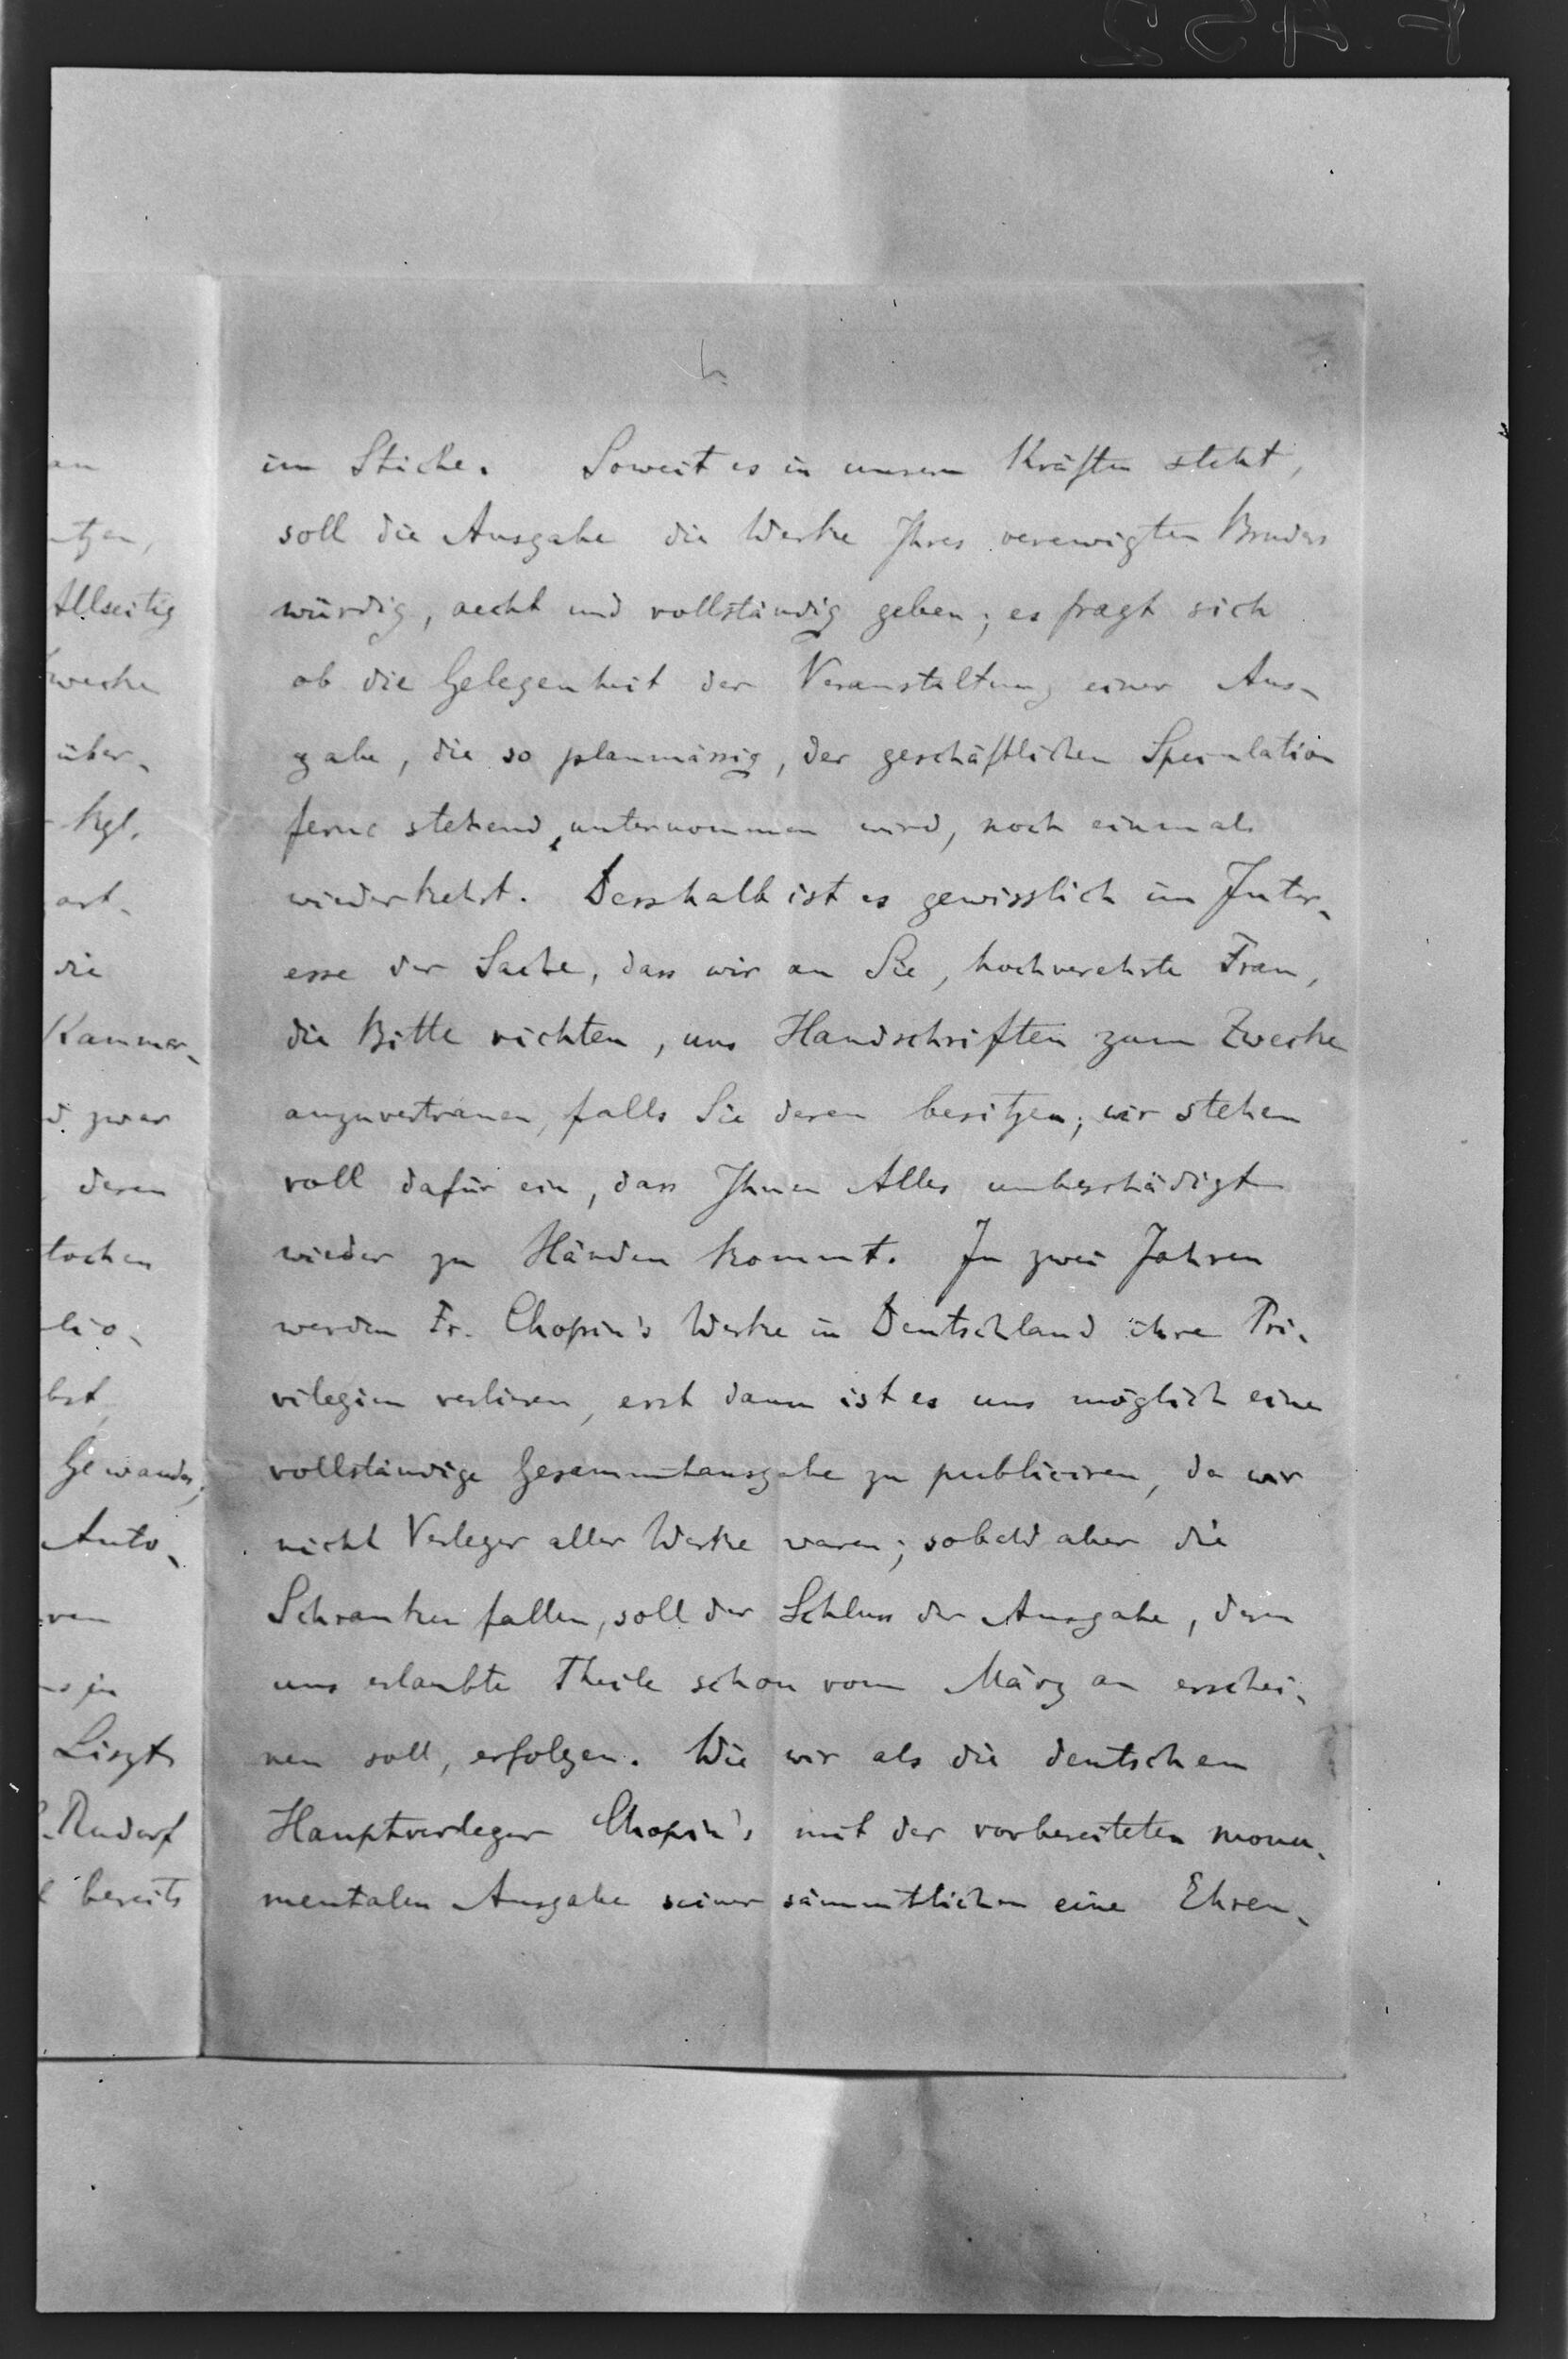 im Stiche. Soweit es in unsern Kräften steht,
soll die Ausgabe die Werke Ihres verewigten Bruders
würdig, aecht und vollständig geben; es fragt sich
ob die Gelegenheit der Veranstaltung einer Aus-
gabe, die so planmässig, der geschäftlichen Speculation
ferne stehend, unternommen wird, noch einmals
wiederkehrt. Desshalb ist es gewisslich im Inter-
esse der Sache, dass wir an Sie, hochverehrte Frau,
die Bitte richten, uns Handschriften zum Zwecke
anzuvertrauen, falls Sie deren besitzen; wir stehen
voll dafür ein, dass Ihnen Alles unbeschädigt
wieder zu Händen kommt. In zwei Jahren
werden Fr. Chopin's Werke in Deutschland ihre Pri-
vilegien verlieren, erst dann ist es uns möglich eine
vollständige Gesammtausgabe zu publiciren, da wir
nicht Verleger aller Werke waren; sobald aber die
Schranken fallen, soll der Schluss der Ausgabe, deren
uns erlaubte Theile schon vom März an erschei-
nen soll, erfolgen. Wie wir als die deutschen
Hauptverleger Chopin's mit der vorbereiteten monu-
mentalen Ausgabe seiner sämmtlichen eine Ehren-
an
tzen,
Allseitig
zwecke
über-
Kgl.
art-
die
Kammer-
d. zwar
deren
tochen
lio-
bst,
Gewandes,
Auto-
ren
Liszt
Rudorf
bereits